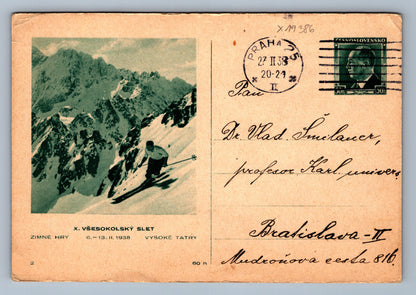 X 19386
PRAHA 25
27 II 38
20-21
II
ČESKOSLOVENSKO
50 50
Pan
Dr. Vlad. Šmilauer,
profesor Karl. univers.
Bratislava-II
Mudroňova cesta 816.
X. VŠESOKOLSKÝ SLET
ZIMNÍ HRY 6.-13. II. 1938 VYSOKÉ TATRY
2 50 h